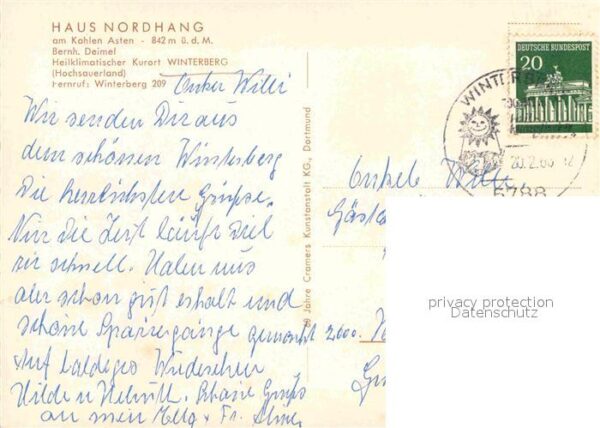 HAUS NORDHANG
am Kahlen Asten - 842 m ü. d. M.
Bernh. Deimel
Heilklimatischer Kurort WINTERBERG
(Hochsauerland)
Fernruf: Winterberg 209
Onkel Willi
Wir senden Dir aus
dem schönen Winterberg
Die herzlichsten Grüsse.
Nur die Zeit läuft viel
zu schnell. Haben uns
aber schon gut erholt und
schöne Spaziergänge gemacht
Auf baldiges Wiedersehen
Hilde u Helmut. Schöne Grüße
an
60 Jahre Cramers Kunstanstalt KG., Dortmund
20
DEUTSCHE BUNDESPOST
WINTERBERG
5788
Onkel
privacy protection
Datenschutz